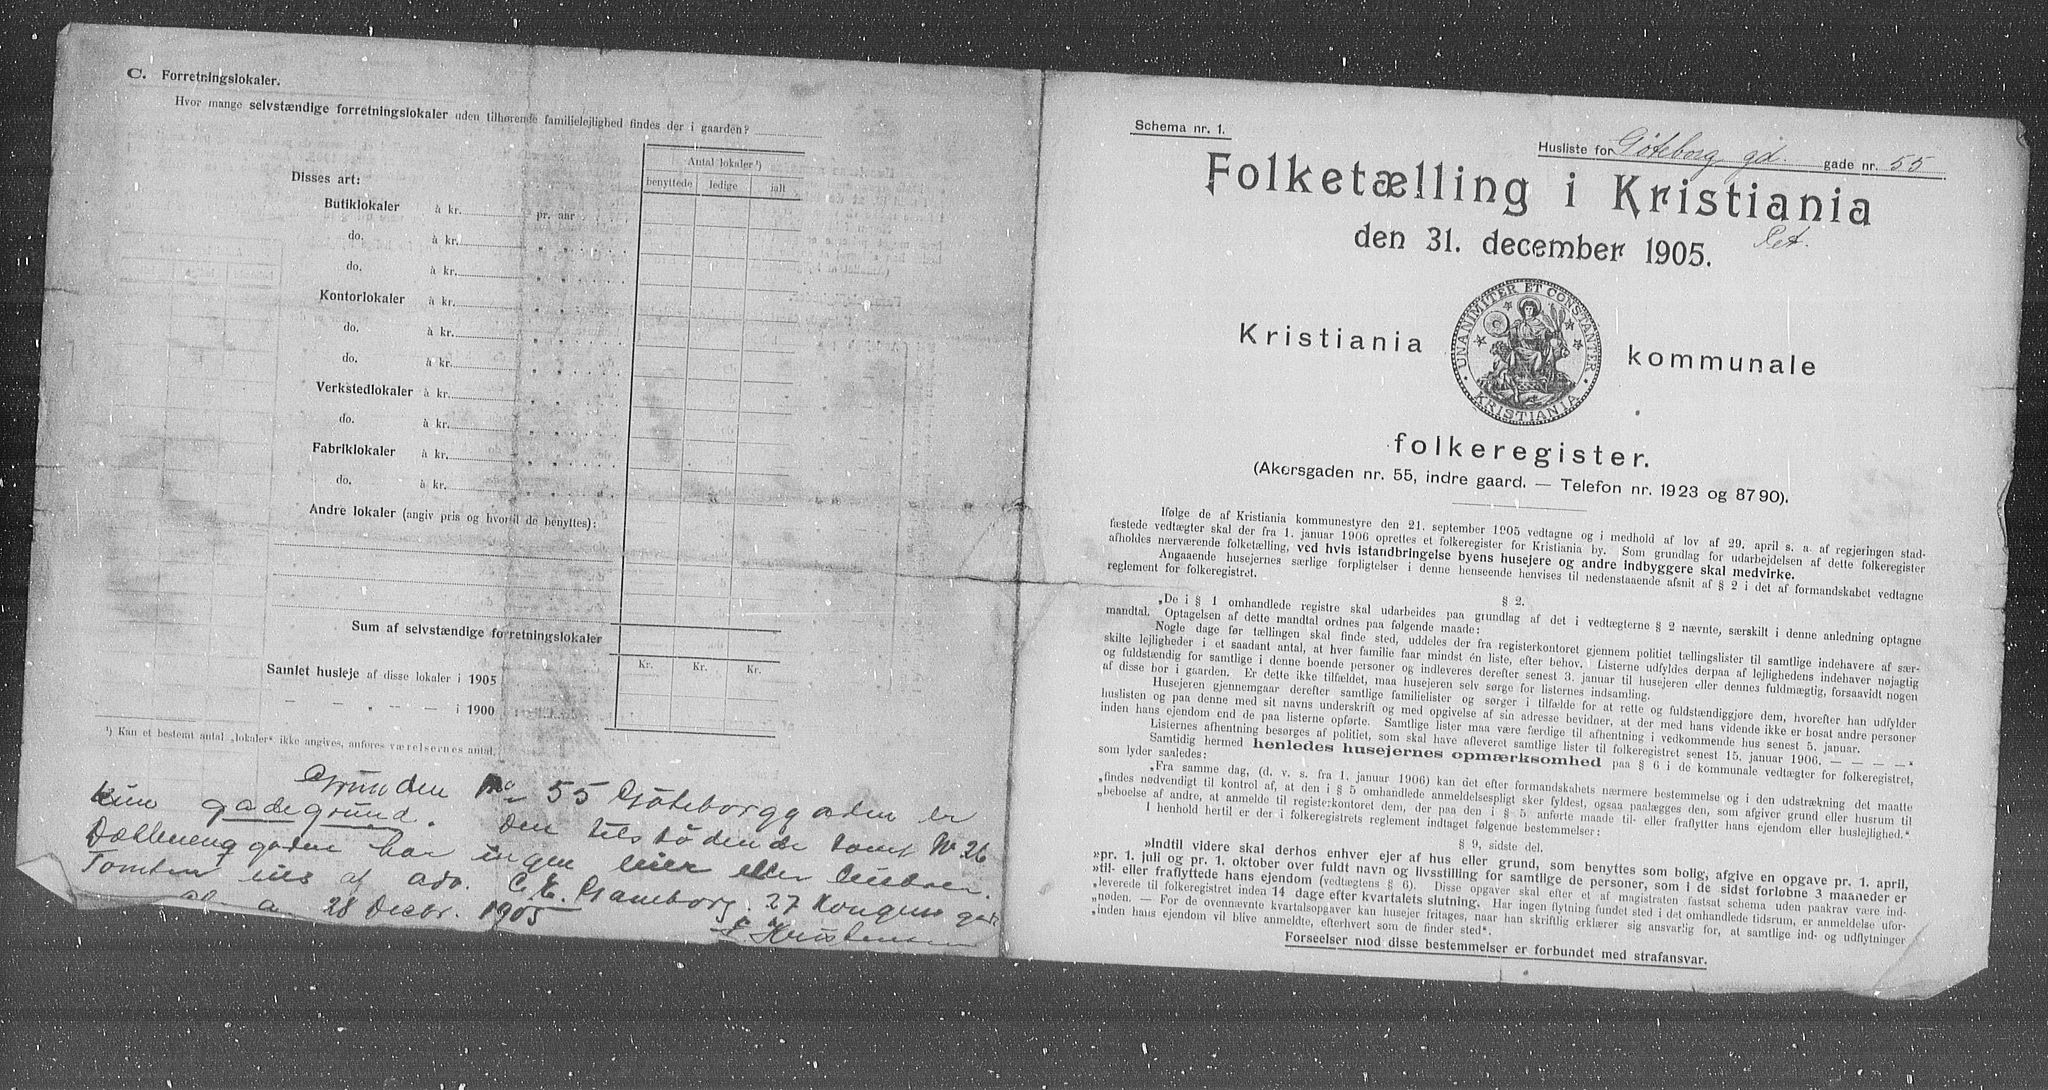 C. Forretningslokaler.
Hvor mange selvstændige forretningslokaler uden tilhørende familielejlighed findes der i gaarden?
Antal lokaler ¹)
benyttede ledige ialt
Disses art:
Butiklokaler à kr. pr. aar
do. à kr. „ „
do. à kr. „ „
Kontorlokaler à kr. „ „
do. à kr. „ „
do. à kr. „ „
Verkstedlokaler à kr. „ „
do. à kr. „ „
Fabriklokaler à kr. „ „
do. à kr. „ „
Andre lokaler (angiv pris og hvortil de benyttes):
Sum af selvstændige forretningslokaler
Kr. Kr. Kr.
Samlet husleje af disse lokaler i 1905
— — „ — — i 1900
¹) Kan et bestemt antal „lokaler“ ikke angives, anføres værelsernes antal.
Grunden No 55 Göteborggaden er
kun gadegrund. Den tilstödende tomt No 26
Dælenenggaden har ingen eier eller
Tomten eies af adv. C. E. 27 Kongens gade
28 Decbr. 1905
Kristensen
Schema nr. 1.
Husliste for Göteborg gd. gade nr. 55
Folketælling i Kristiania
den 31. december 1905.
Ret.
Kristiania kommunale
UNANIMITER ET CONSTANTER
KRISTIANIA
folkeregister.
(Akersgaden nr. 55, indre gaard. — Telefon nr. 1923 og 8790).
Ifølge de af Kristiania kommunestyre den 21. september 1905 vedtagne og i medhold af lov af 29. april s. a. af regjeringen stad-
fæstede vedtægter skal der fra 1. januar 1906 oprettes et folkeregister for Kristiania by. Som grundlag for udarbejdelsen af dette folkeregister
afholdes nærværende folketælling, ved hvis istandbringelse byens husejere og andre indbyggere skal medvirke.
Angaaende husejernes særlige forpligtelser i denne henseende henvises til nedenstaaende afsnit af § 2 i det af formandskabet vedtagne
reglement for folkeregistret.
§ 2.
„De i § 1 omhandlede registre skal udarbeides paa grundlag af det i vedtægterne § 2 nævnte, særskilt i denne anledning optagne
mandtal. Optagelsen af dette mandtal ordnes paa følgende maade:
Nogle dage før tællingen skal finde sted, uddeles der fra registerkontoret gjennem politiet tællingslister til samtlige indehavere af sær-
skilte lejligheder i et saadant antal, at hver familie faar mindst én liste, efter behov. Listerne udfyldes derpaa af lejlighedens indehaver nøjagtig
og fuldstændig for samtlige i denne boende personer og indleveres derefter senest 3. januar til husejeren eller dennes fuldmægtig, forsaavidt nogen
af disse bor i gaarden. Er dette ikke tilfældet, maa husejeren selv sørge for listernes indsamling.
Husejeren gjennemgaar derefter samtlige familielister og sørger i tilfælde for at rette og fuldstændiggjøre dem, hvorefter han udfylder
huslisten og paa denne med sit navns underskrift og med opgivelse af sin adresse bevidner, at der med hans vidende ikke er bosat andre personer
inden hans ejendom end de paa listerne opførte. Samtlige lister maa være færdige til afhentning i vedkommende hus senest 5. januar.
Listernes afhentning besørges af politiet, som skal have afleveret samtlige lister til folkeregistret senest 15. januar 1906. — — — —“
Samtidig hermed henledes husejernes opmærksomhed paa § 6 i de kommunale vedtægter for folkeregistret,
som lyder saaledes:
„Fra samme dag, (d. v. s. fra 1. januar 1906) kan det efter formandskabets nærmere bestemmelse og i den udstrækning det maatte
„findes nødvendigt til kontrol af, at den i § 5 omhandlede anmeldelsespligt sker fyldest, ogsaa paalægges den, som afgiver grund eller husrum til
„beboelse af andre, at anmelde til registerkontoret dem, der paa den i § 5 anførte maade til- eller fraflytter hans ejendom eller huslejlighed.“
I henhold hertil er der i folkeregistrets reglement indtaget følgende bestemmelser:
§ 9, sidste del.
„Indtil videre skal derhos enhver ejer af hus eller grund, som benyttes som bolig, afgive en opgave pr. 1. april,
„pr. 1. juli og pr. 1. oktober over fuldt navn og livsstilling for samtlige de personer, som i de sidst forløbne 3 maaneder er
„til- eller fraflyttede hans ejendom (vedtægtens § 6). Disse opgaver skal efter et af magistraten fastsat schema uden paakrav være ind-
„leverede til folkeregistret inden 14 dage efter kvartalets slutning. Har ingen flytning fundet sted i det omhandlede tidsrum, er anmeldelse ufor-
„nøden. — For de ovennævnte kvartalsopgaver kan husejer fritages, naar han skriftlig erklærer sig ansvarlig for, at samtlige ind- og udflytninger
„inden hans ejendom vil blive anmeldte, efterhvert som de finder sted“.
Forseelser mod disse bestemmelser er forbundet med strafansvar.